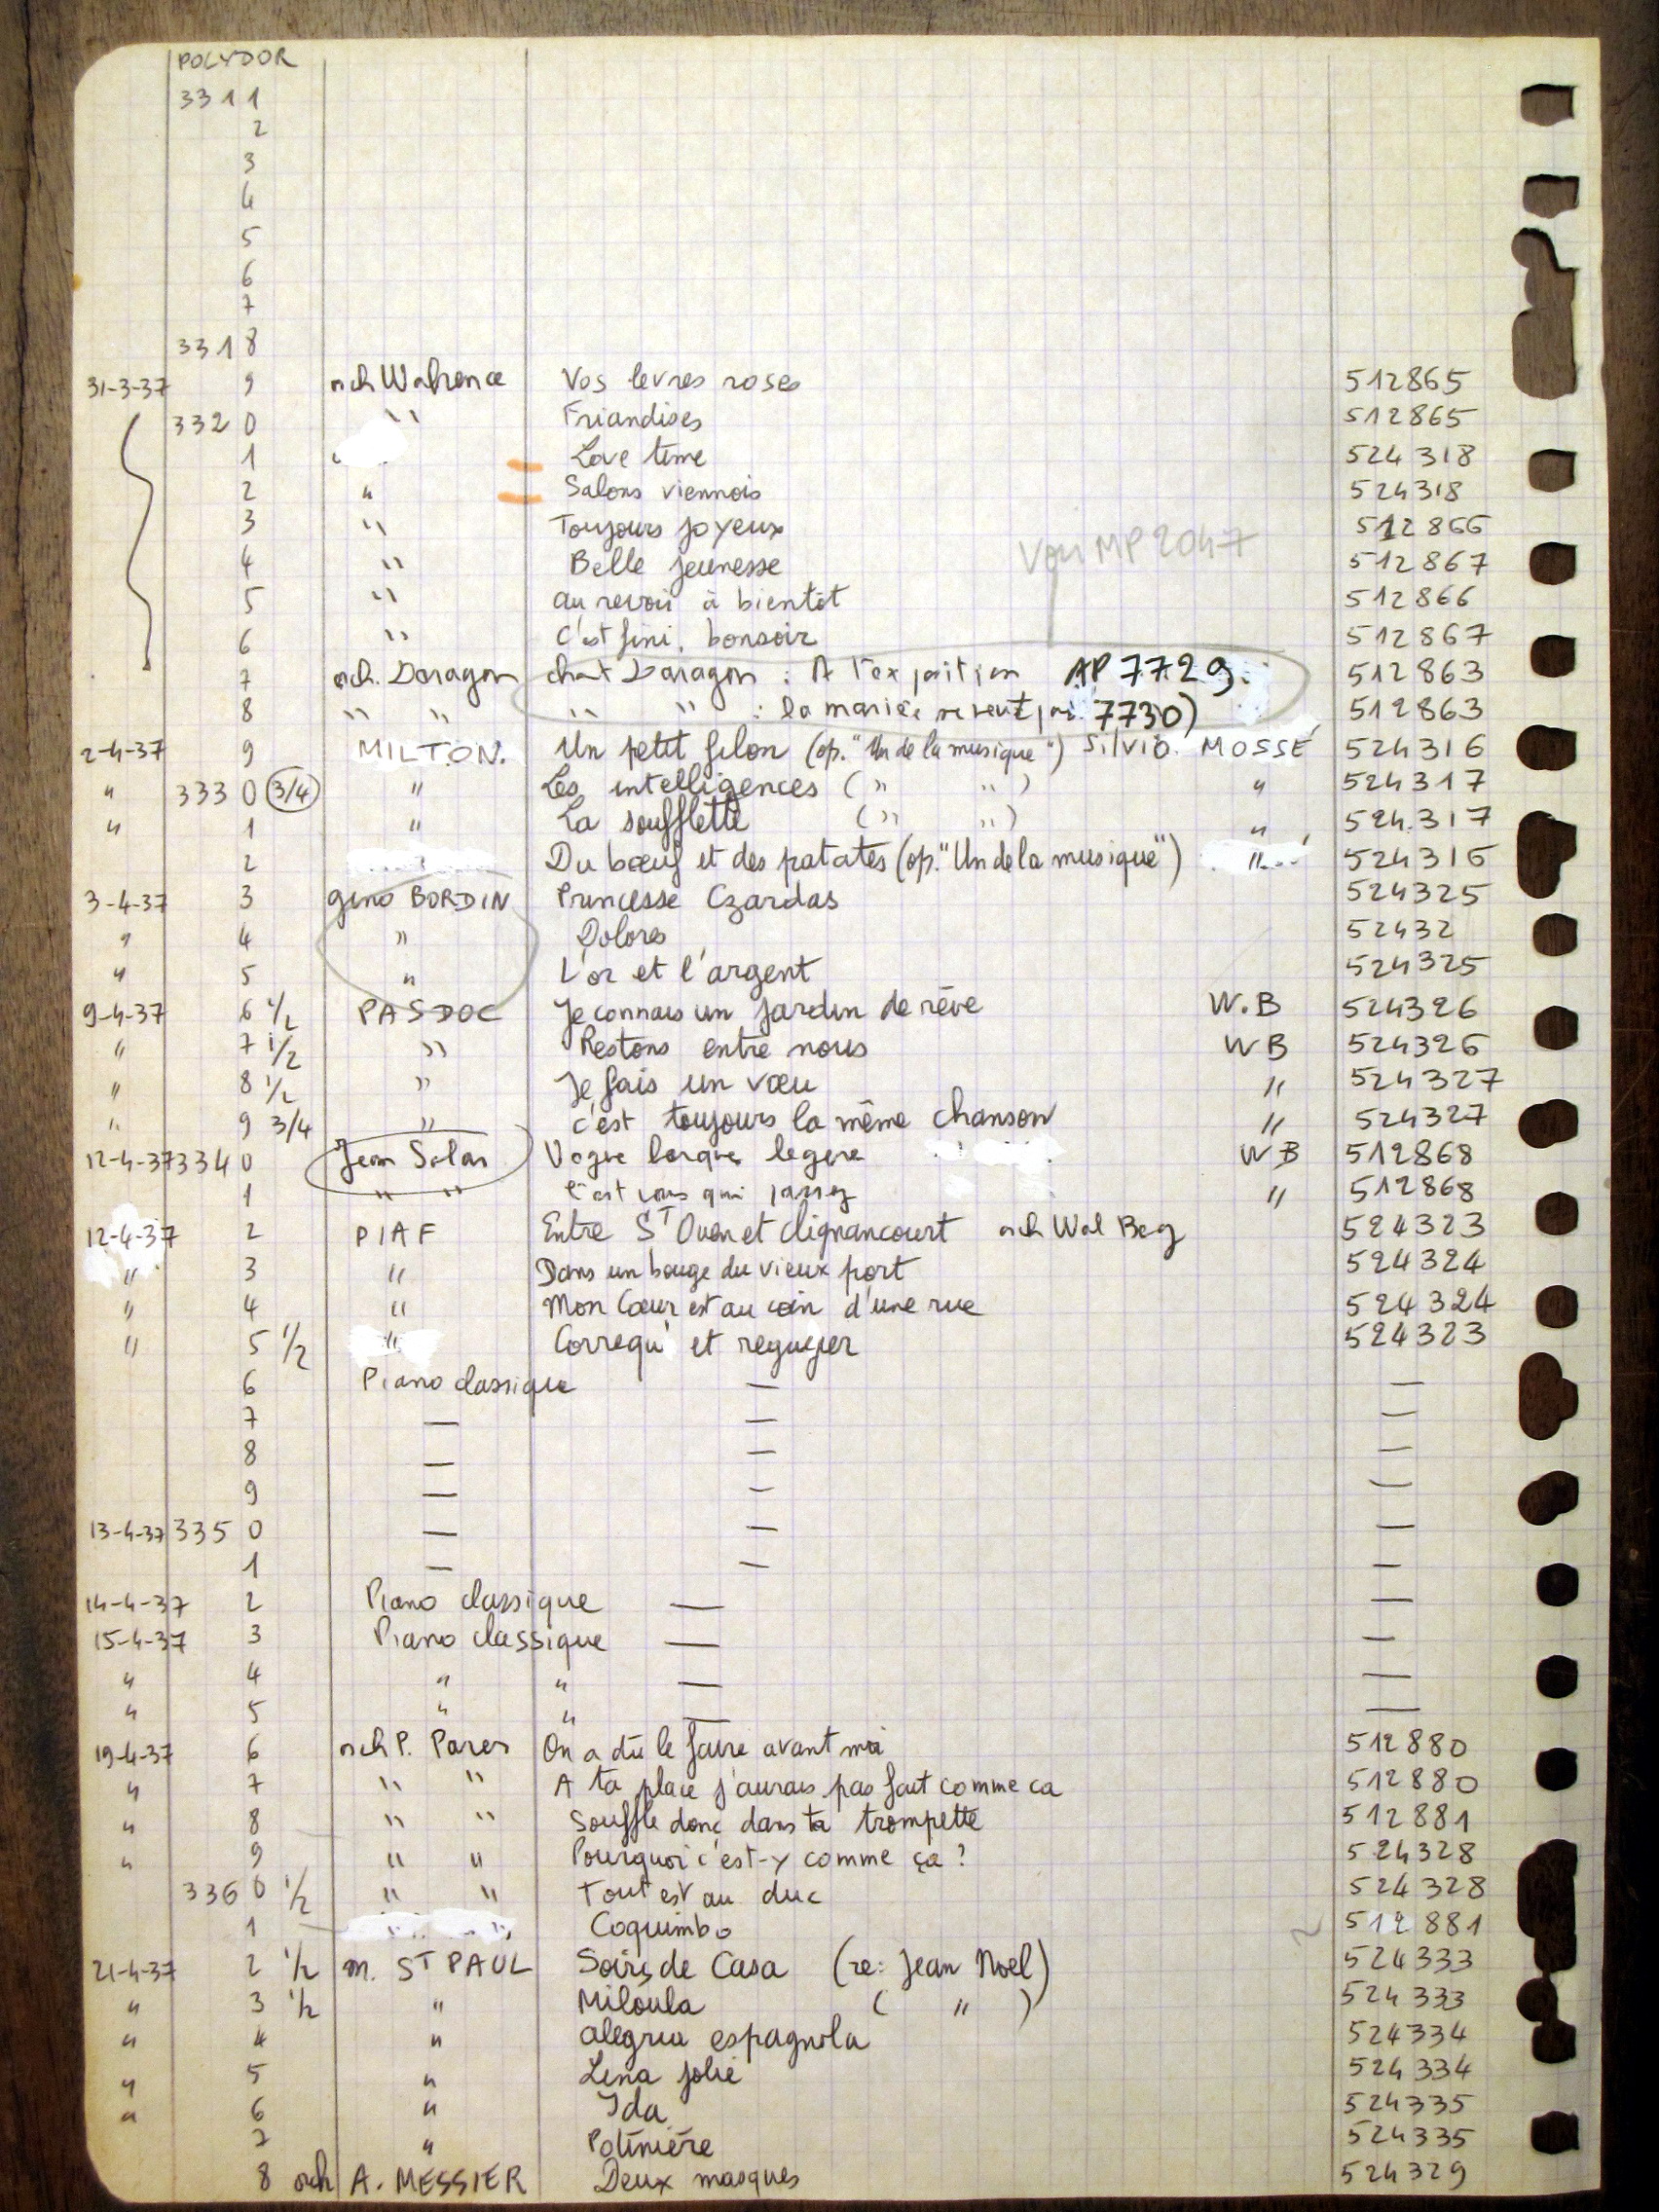 POLYDOR
3311
2
3
4
5
6
7
3318
31-3-37 9 orch Walrence Vos levres roses 512865
3320 " Friandises 512865
1 Love time 524318
2 " Salons viennois 524318
3 " Toujours joyeux 512866
Voir MP 2047
4 " Belle jeunesse 512867
5 " au revoir à bientôt 512866
6 " C'est fini, bonsoir 512867
7 orch. Daragon chant Daragon : A l'exposition AP 7729. 512863
8 " " " " : la mariée 7730) 512863
2-4-37 9 MILTON. Un petit filon (op. "Un de la musique") Silvio. MOSSÉ 524316
" 3330 (3/4) " Les intelligences (" ") " 524317
" 1 " La soufflette (" ") " 524.317
2 Du bœuf et des patates (op. "Un de la musique") " 524316
3-4-37 3 gino BORDIN Princesse Czardas 524325
" 4 " Dolores 52432
" 5 " L'or et l'argent 524325
9-4-37 6 1/2 PASDOC Je connais un jardin de rêve W.B 524326
" 7 1/2 " Restons entre nous WB 524326
" 8 1/2 " Je fais un vœu " 524327
" 9 3/4 " c'est toujours la même chanson " 524327
12-4-37 3340 Jean Solar Vogue barque legere WB 512868
1 " " C'est vous qui passez " 512868
12-4-37 2 PIAF Entre ST Ouen et clignancourt orch Wal Berg 524323
" 3 " Dans un bouge du vieux port 524324
" 4 " Mon Cœur est au coin d'une rue 524324
" 5 1/2 " Correqu' et reguyer 524323
6 Piano classique — —
7 — — —
8 — — —
9 — — —
13-4-37 3350 — — —
1 — — —
14-4-37 2 Piano classique — —
15-4-37 3 Piano classique — —
" 4 " " — —
" 5 " " — —
19-4-37 6 orch P. Pares On a dû le faire avant moi 512880
" 7 " " A ta place j'aurais pas fait comme ca 512880
" 8 " " Souffle donc dans ta trompette 512881
" 9 " " Pourquoi c'est-y comme ça ? 524328
3360 1/2 " " Tout est au duc 524328
1 " " Coquimbo 512881
21-4-37 2 1/2 m. ST PAUL Soirs de Casa (re: Jean Noël) 524333
" 3 1/2 " Miloula ( " ) 524333
" 4 " alegria espagnola 524334
" 5 " Lina jolie 524334
" 6 " Ida 524335
7 " Potinière 524335
8 orch A. MESSIER Deux masques 524329